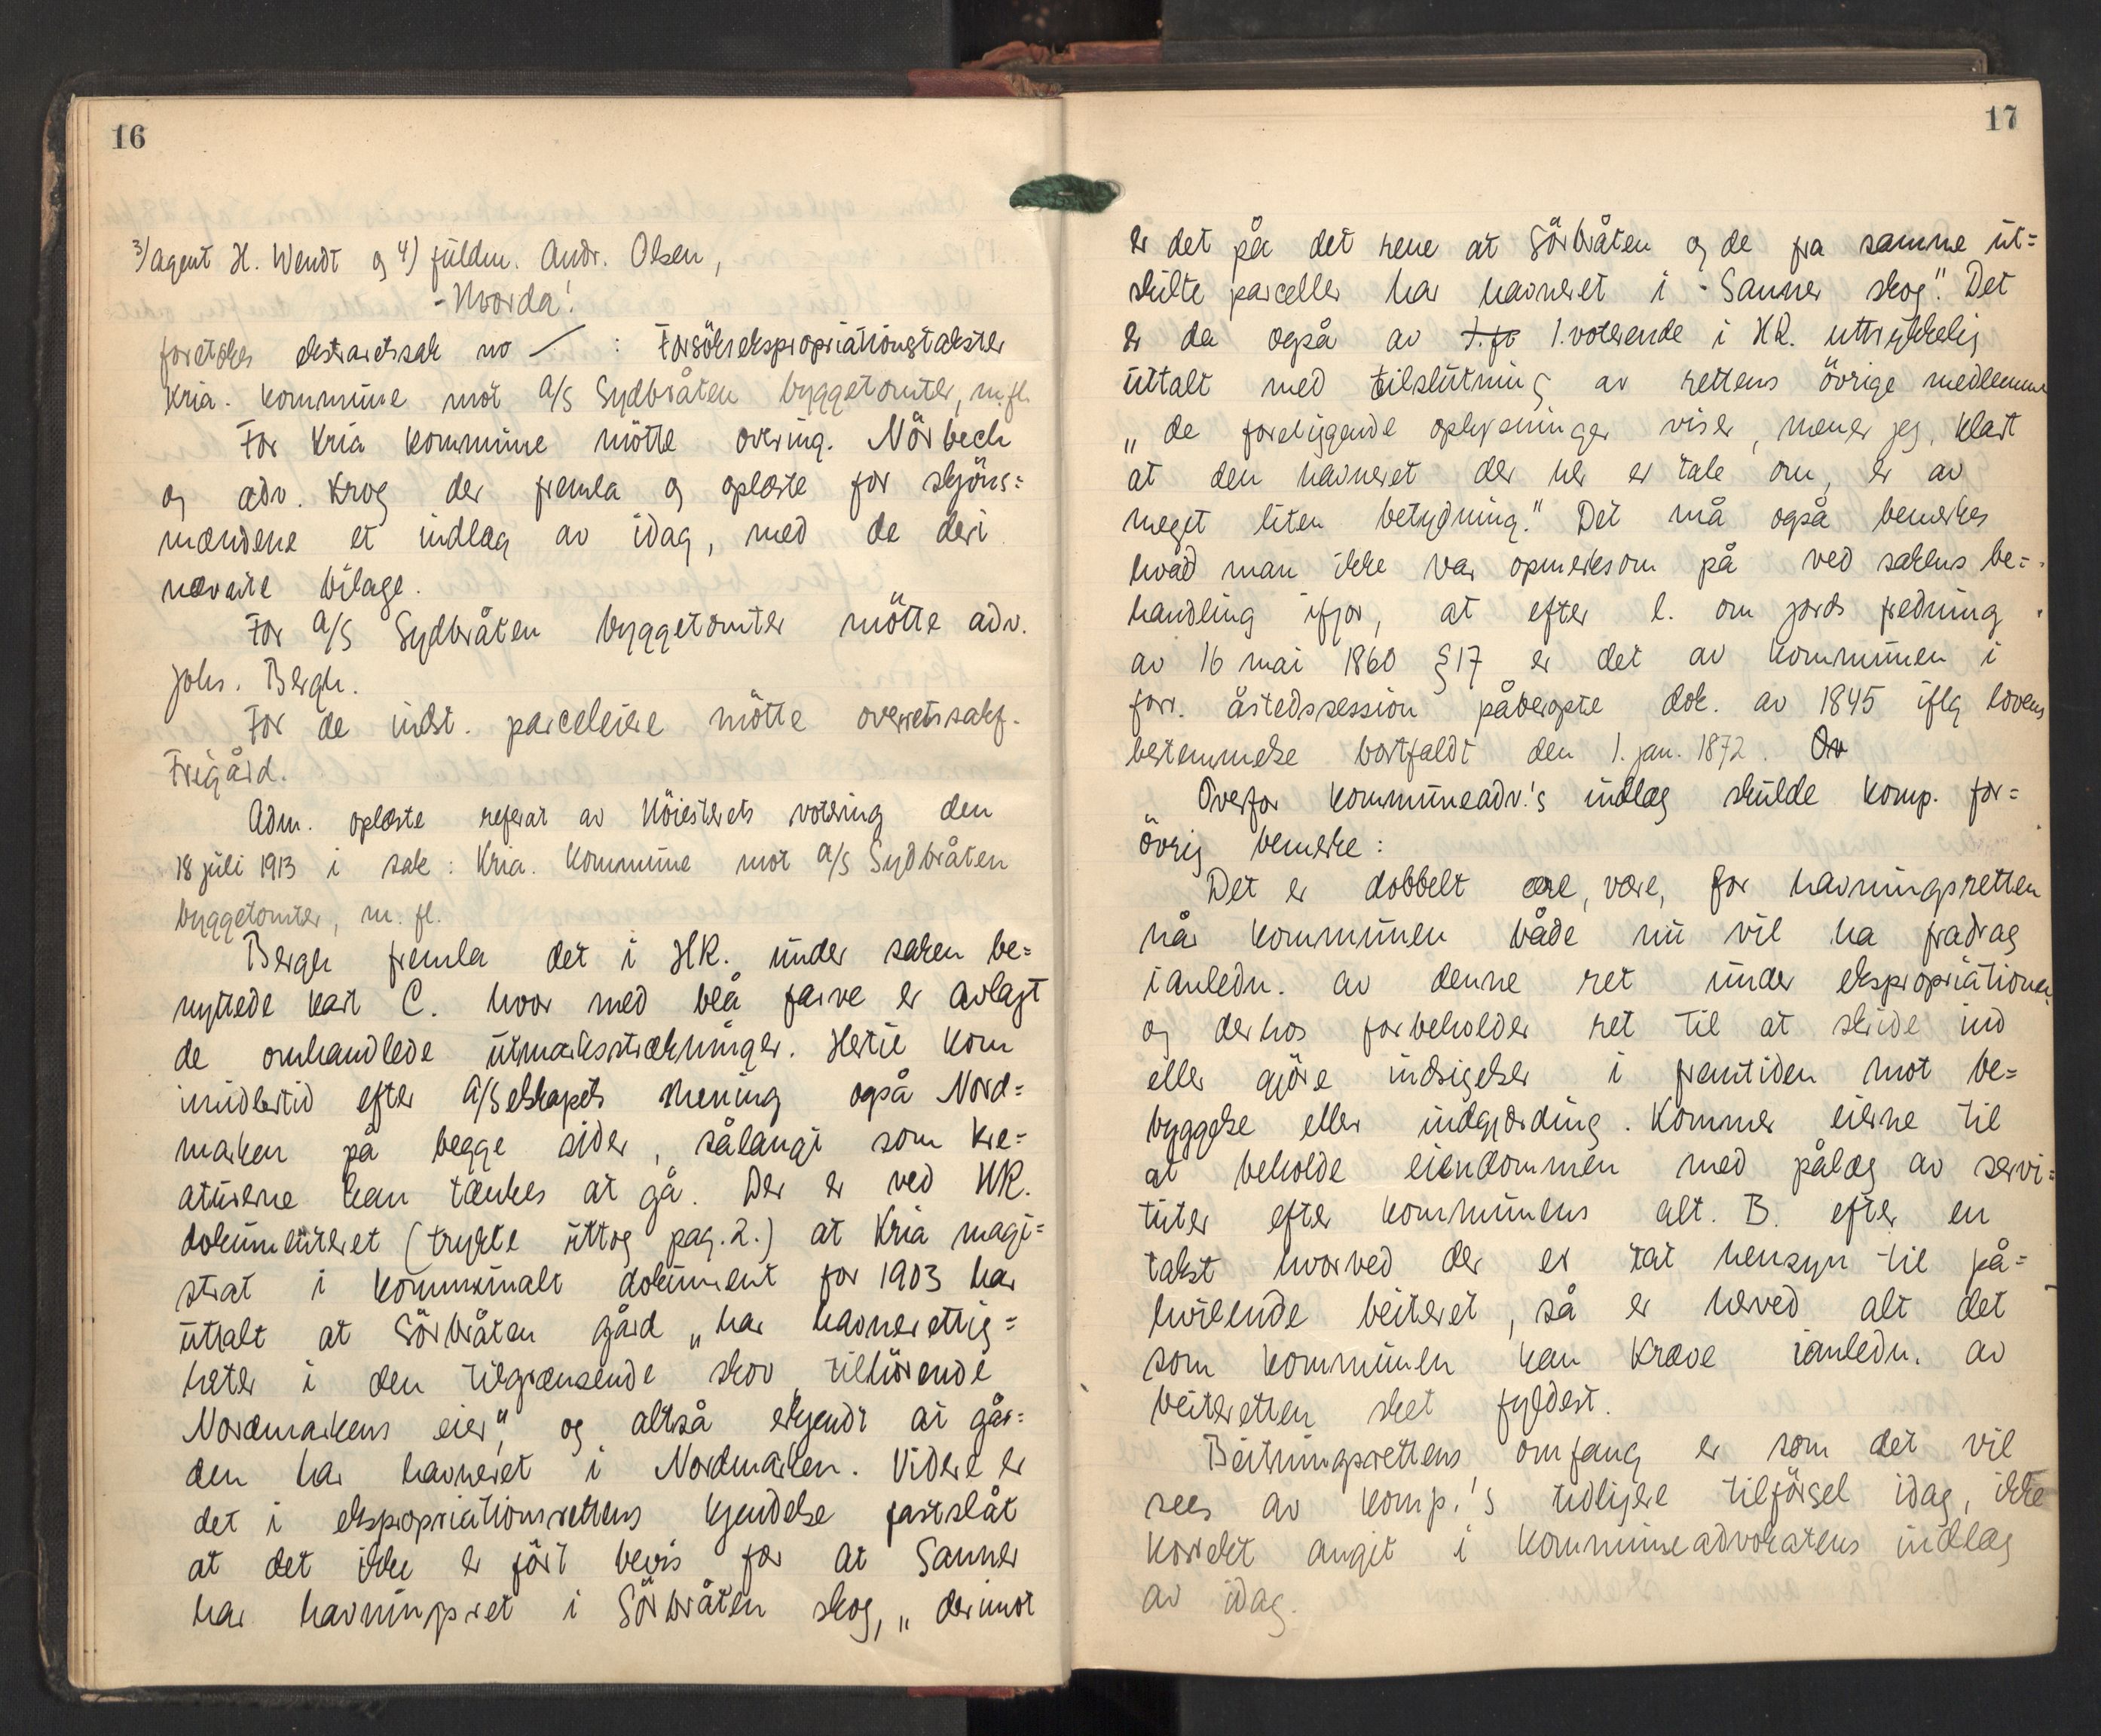 16
3/ agent H. Wendt og 4) fuldm. Andr. Olsen,
- Hvorda!
foretokes ekstraretssak no — : Forsöksekspropriationstakster
Kria. kommune mot A/S Sydbråten byggetomter, m.fl.
For Kria kommune mötte overing. Nörbech
og adv. Krog der fremla og oplæste for skjöns=
mændene et indlæg av idag, med de deri
nævnte bilage.
For A/S Sydbråten byggetomter mötte adv.
Johs. Bergh.
For de indst. parceleiere mötte overretssakf.
Frigård.
Adm. oplæste referat av Höiesterets votering den
18 juli 1913 i sak: Kria. kommune mot A/S Sydbråten
byggetomter, m. fl.
Bergh fremla det i HR. under saken be=
nyttede kart C. hvor med blå farve er avlagt
de omhandlede utmarksstrækninger. Hertil kom
imidlertid efter A/Selskapets mening også Nord=
marken på begge sider, sålangt som kre=
aturene kan tænkes at gå. Der er ved HR.
dokumenteret (trykte uttog pag. 2.) at Kria magi=
strat i kommunalt dokument for 1903 har
uttalt at Sörbråten gård „har havnerettig=
heter i den tilgrænsende skov tilhörende
Nordmarkens eier", og altså erkjendt at går=
den har havneret i Nordmarken. Videre er
det i ekspropriationsrettens kjendelse fastslåt
at det ikke er fört bevis for at Sanner
har havningsret i Sörbråten skog, „derimot
17
er det på det rene at Sörbråten og de fra samme ut=
skilte parceller har havneret i Sanner skog". Det
er da også av 1. voterende i HR. uttrykkelig
uttalt med tilslutning av rettens övrige medlemmer
„de foreliggende oplysninger viser, mener jeg, klart
at den havneret der her er tale om, er av
meget liten betydning." Det må også bemerkes
hvad man ikke var opmerksom på ved sakens be=
handling ifjor, at efter l. om jords fredning
av 16 mai 1860 §17 er det av kommunen i
forr. åstedssession påberopte dok. av 1845 iflg lovens
bestemmelse bortfaldt den 1. jan. 1872. Ov
Overfor kommuneadv.'s indlæg skulde komp. for=
övrig bemerke:
Det er dobbelt være, for havningsretten
når kommunen både nu vil ha fradrag
ianledn. av denne ret under ekspropriationen
og derhos forbeholder ret til at skride ind
eller gjöre indsigelser i fremtiden mot be=
byggelse eller indgjærding. Kommer eierne til
at beholde eiendommen med pålæg av servi=
tuter efter kommunens alt. B. efter en
takst hvorved der er tat hensyn til på=
hvilende beiteret, så er herved alt det
som kommunen kan kræve ianledn. av
beiteretten sket fyldest.
Beitningsrettens omfang er som det vil
sees av komp.'s tidligere tilförsel idag, ikke
korrekt angit i kommuneadvokatens indlæg
av idag.